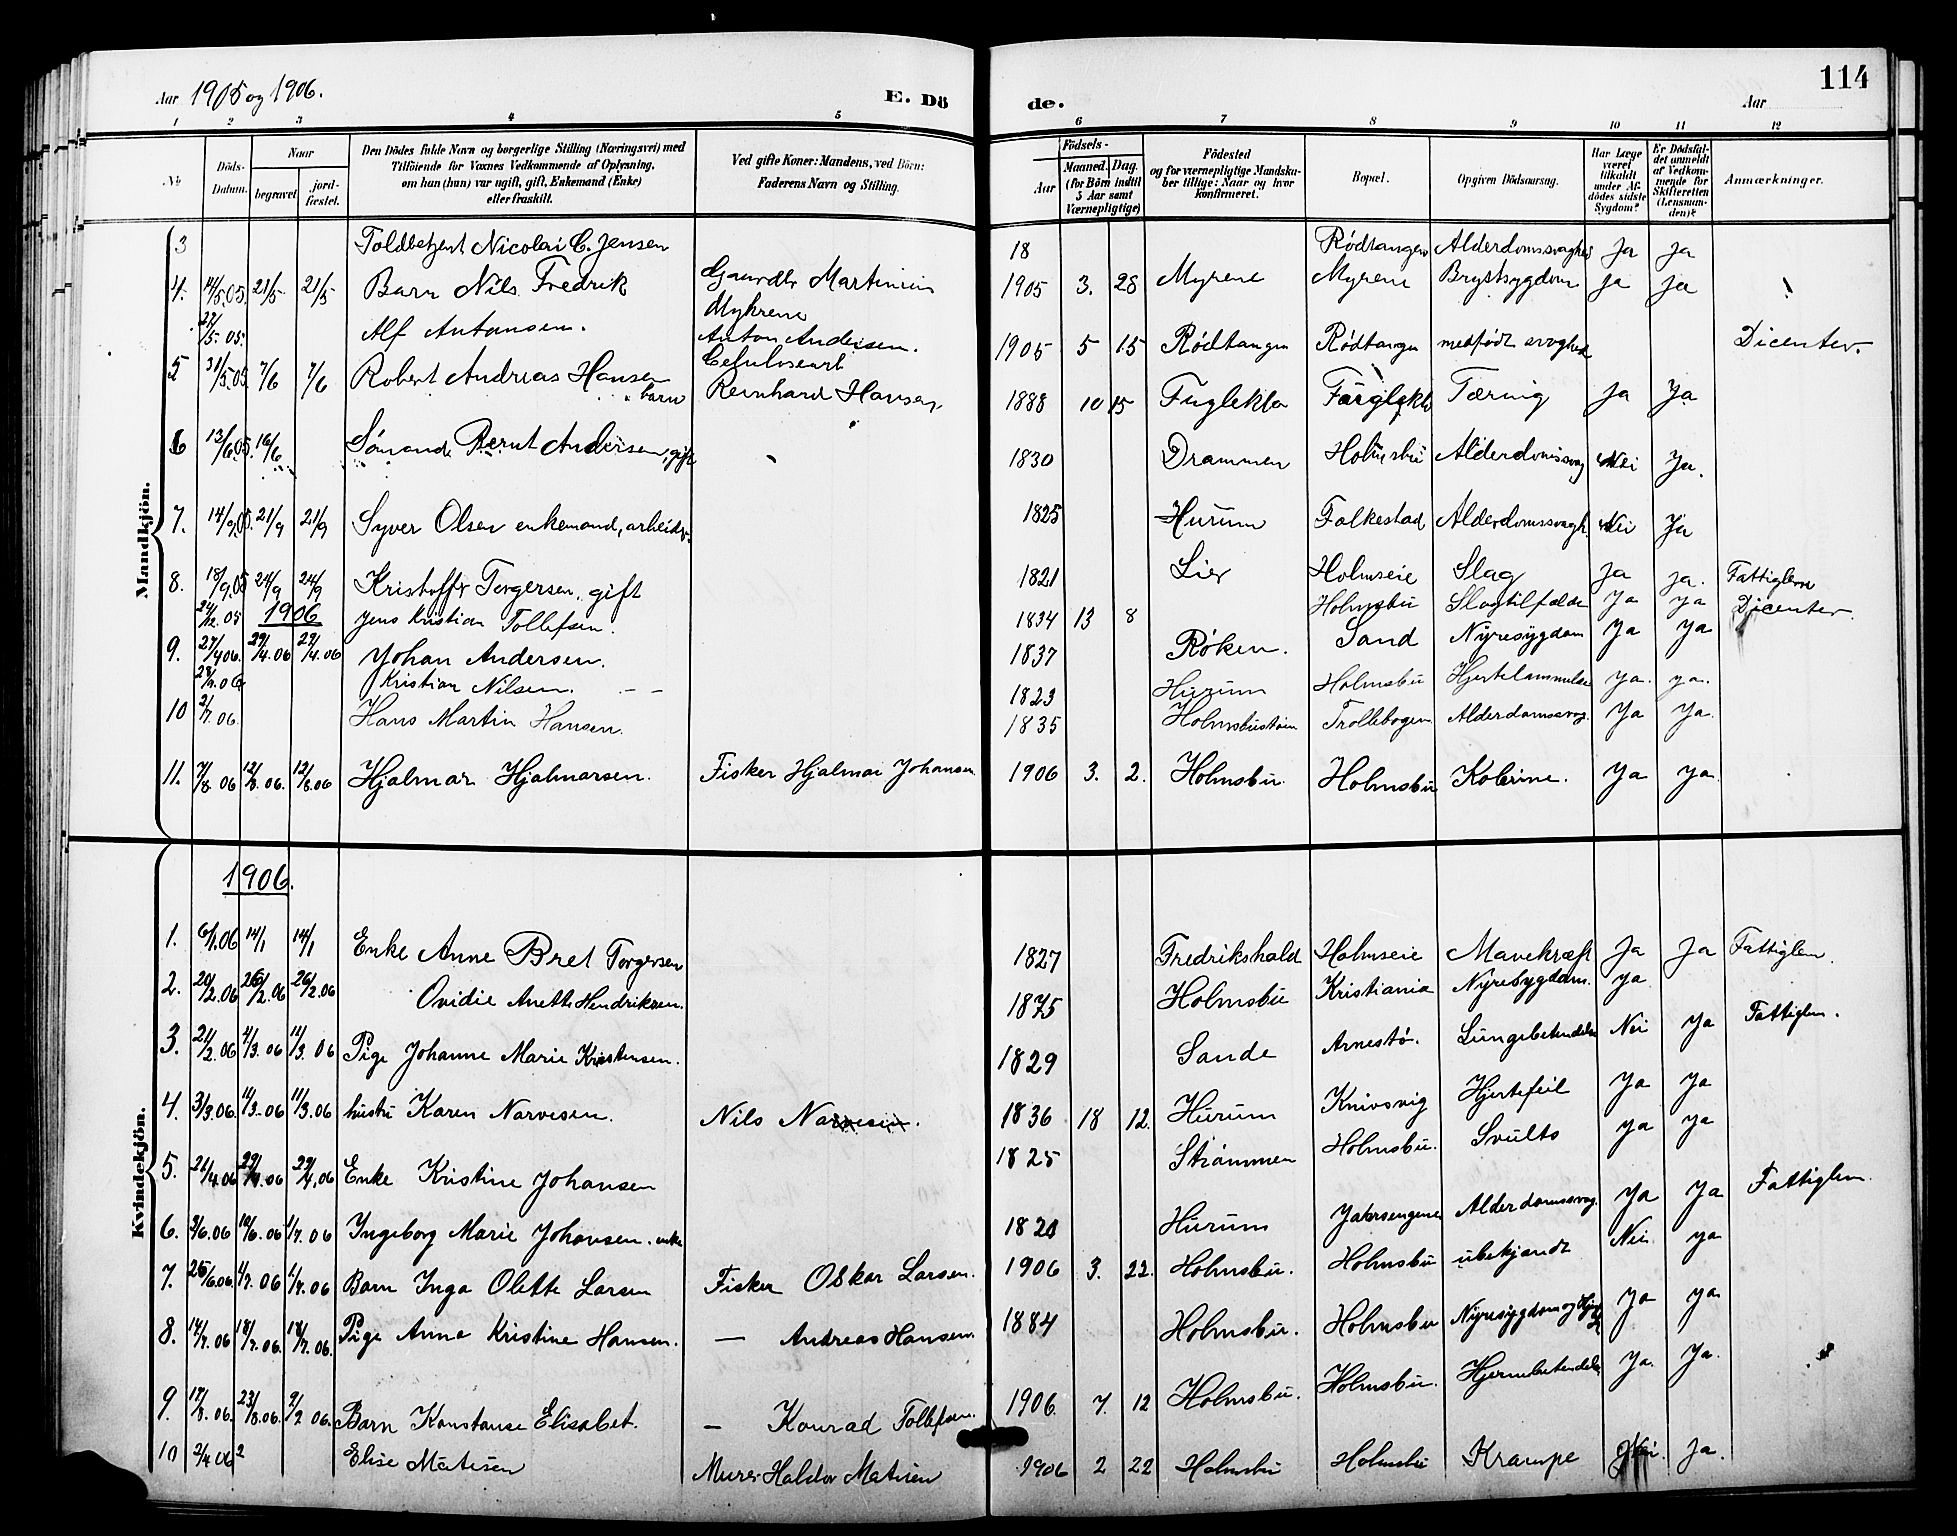 114
Aar 1905 og 1906. E. Dö de. Aar
1 2 3 4 5 6 7 8 9 10 11 12
No
Döds-Datum.
Naar
begravet
jord-fæstet.
Den Dödes fulde Navn og borgerlige Stilling (Næringsvei) med
Tilföiende for Voxnes Vedkommende af Oplysning,
om han (hun) var ugift, gift, Enkemand (Enke)
eller fraskilt.
Ved gifte Koner: Mandens, ved Börn:
Faderens Navn og Stilling.
Födsels-
Aar
Maaned. Dag.
(for Börn indtil
5 Aar samt
Værnepligtige)
Födested
og for værnepligtige Mandska-
ber tillige: Naar og hvor
konfirmeret.
Bopæl.
Opgiven Dödsaarsag.
Har Læge
været
tilkaldt
under Af-
dödes sidste
Sygdom?
Er Dödsfal-
det anmeldt
af Vedkom-
mende for
Skifteretten
(Lensman-
den)?
Anmærkninger.
Mandkjön.
3 Toldbetjent Nicolai C. Jensen 18 Rødtangen Alderdomssvaghed Ja Ja
4. 14/5.05. 21/5 21/5 Barn Nils Fredrik Gaardbr Martinius Myhrene 1905 3. 28 Myrene Myrene Brystsygdom Ja Ja
22/5.05. Alf Antonsen. Anton Andersen. 1905 5 15 Rødtangen Rødtangen medfødt svaghed Dicenter.
5 31/5.05. 7/6 7/6 Robert Andreas Hansen barn Reinhard Hansen 1888 10 15 Fuglekla Tæring Ja Ja
6 13/6.05. 16/6 Sømand Bernt Andersen, gift 1830 Drammen Holmsbu Alderdomssvag Nei Ja.
7. 14/9.05. 21/9 21/9 Syver Olsen enkemand, arbeider. 1825 Hurum Folkestad Alderdomssvagh. Nei Ja
8. 18/9.05 24/9 24/9 Kristoffer Torgersen, gift 1821 Lier Holmseie Slag Ja ja. Fattiglem
24/12.05 Jens Kristian Tollefsen. 1834 13 8 Holmsbu Slagtilfælde Ja Ja Dicenter.
1906
9. 27/4 06. 29/4.06 29/4.06 Johan Andersen. 1837 Røken. Sand Nyresygdom Ja Ja
Kristian Nilsen. 1823 Hurum Holmsbu Hjertelammelse Ja. ya.
10 2/7.06. Hans Martin Hansen. 1835 Trollebogen Alderdomssvag. Ja Ja.
11. 7/8 06 12/8.06. 12/8.06 Hjalmar Hjalmarsen. Fisker Hjalmar Johansen 1906 3. 2. Holmsbu Holmsbu Kolerine. Ja Ja
Kvindekjön.
1906.
1. 6/1.06 14/1 14/1 Enke Anne Bret Torgersen 1827 Fredrikshald Holmseie Mavekræft Ja Ja Fattiglem.
2. 20/2.06 26/2.06 26/2.06 Ovidie Anette Hendriksen. 1875 Holmsbu Kristiania Nyresygdom. Ja
3. 21/2.06 4/3.06 11/3.06 Pige Johanne Marie Kristensen. 1829 Sande Arnestø. Lungebetendelse Nei Ja Fattiglem.
4. 3/3.06. 11/3.06 11/3.06 hustru Karen Narvesen. Nils Narvesen. 1836 18 12. Hurum Knivsvig Hjertefeil Ja Ja
5. 21/4.06 29/4.06 29/4.06 Enke Kristine Johansen 1825 Strømmen Holmsbu. Svulst Ja Ja
6. 3/6.06 10/6.06 1/7.06 Ingeborg Marie Johansen. enke 1820 Hurum Alderdomssvag. Ja Ja Fattiglem.
7. 25/6.06. 1/7.06 1/7.06 Barn Inga Olette Larsen Fisker Oskar Larsen. 1906 3. 22. Holmsbu. Holmsbu ubekjendt Nei Ja
8. 14/7.06 18/7.06. 18/7.06. Pige Anna Kristine Hansen. — Andreas Hansen. 1884 Holmsbu. Holmsbu Nyresygdom og Ja Ja
9. 17/8.06. 23/8.06. Barn Konstanse Elisabet. — Konrad Tollefsen. 1906. 7. 12 Holmsbu. Holmsbu. Hjernebetendelse Ja. Ja.
10 2/4 06 Elise Matisen Murer Haldor Matisen 1906 2 22 Holmsbu Holmsbu Krampe Nei. Ja.